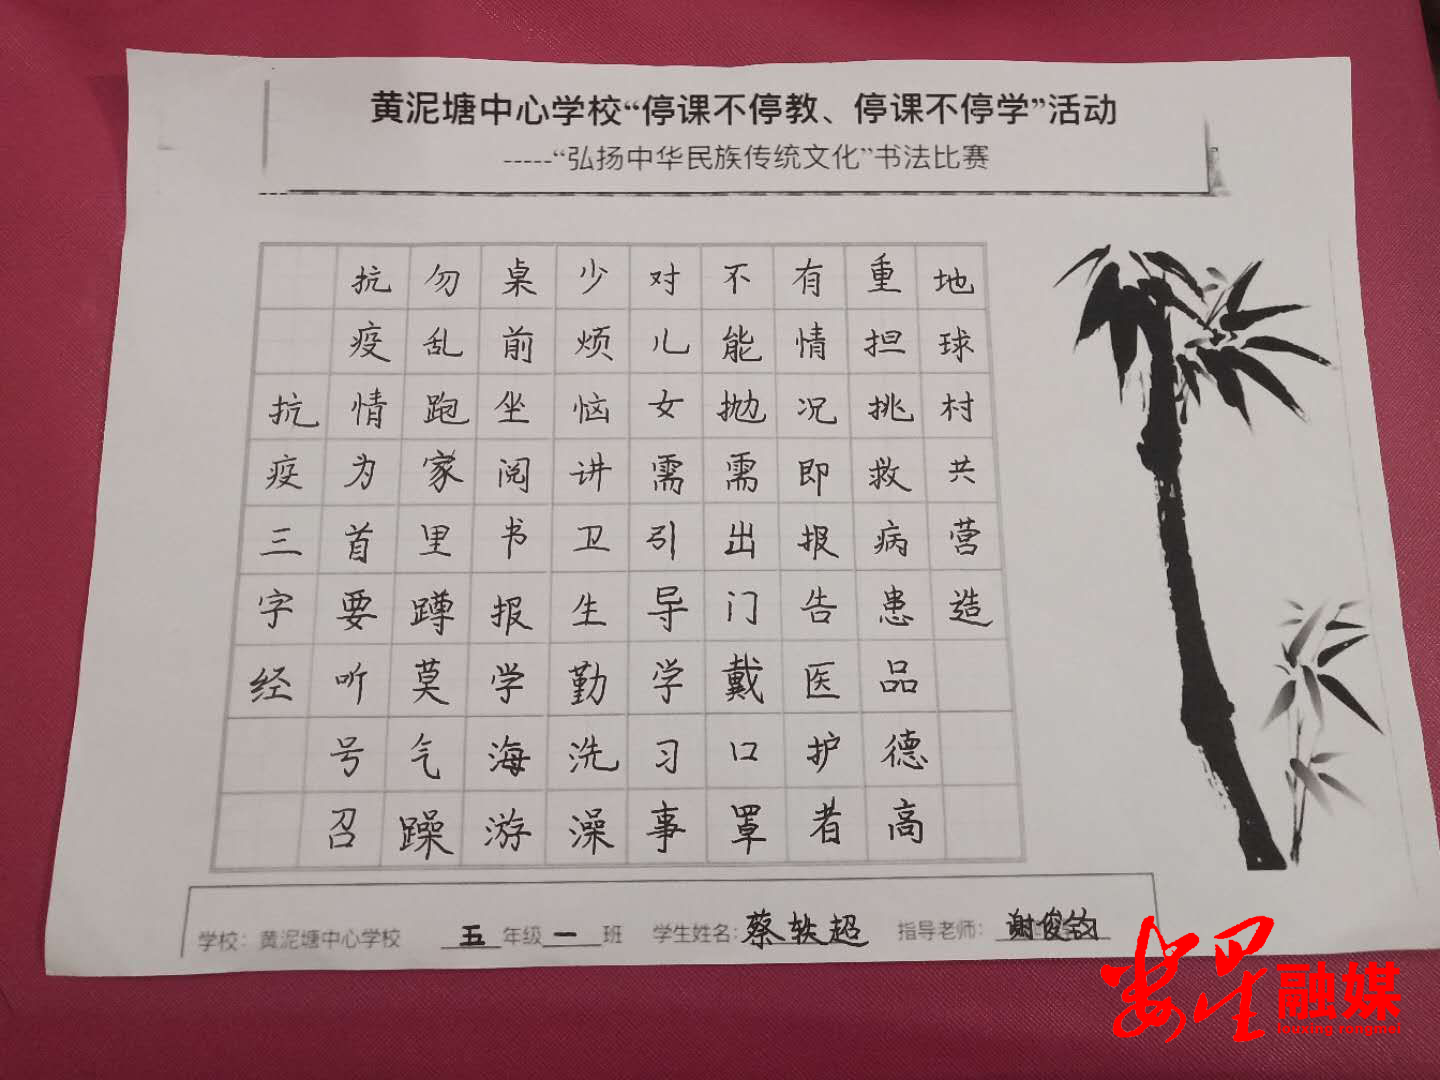 黄泥塘中心学校“停课不停教、停课不停学”活动
-----“弘扬中华民族传统文化”书法比赛
抗疫三字经
抗疫情为首要听号召
勿乱跑家里蹲莫气躁
桌前坐阅书报学海游
少烦恼讲卫生勤洗澡
对儿女需引导学习事
不能抛需出门戴口罩
有情况即报告医护者
重担挑救病患品德高
地球村共营造
学校：黄泥塘中心学校 五年级一班 学生姓名：蔡轶超 指导老师：谢俊
娄星融媒
louxing rongmei